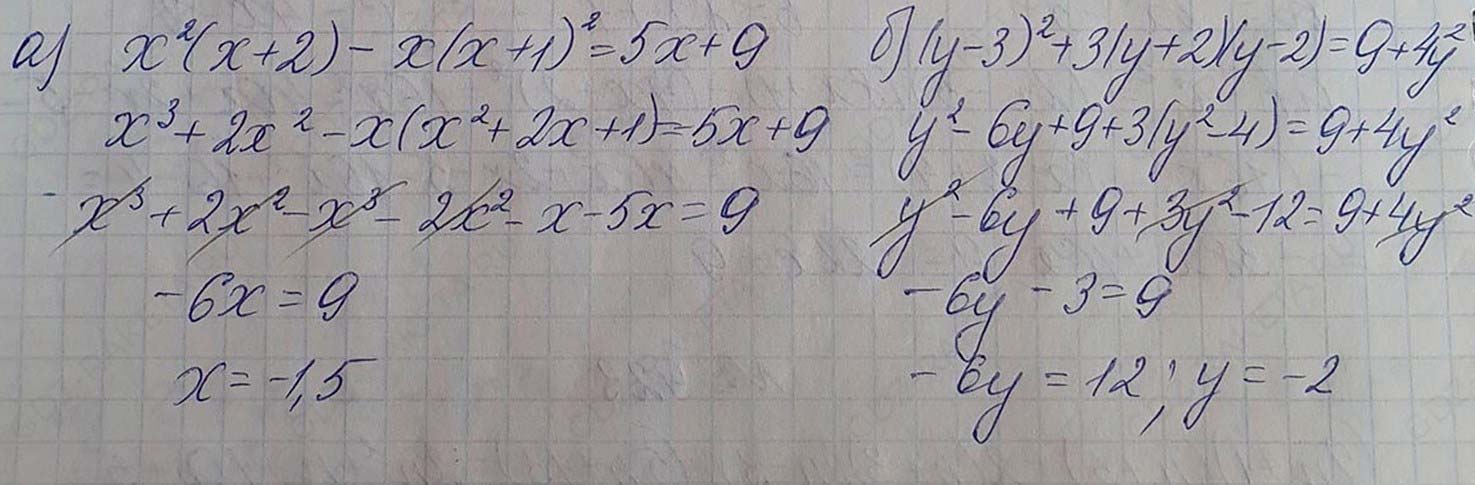 а) x²(x+2) - x(x+1)² = 5x+9
x³ + 2x² - x(x² + 2x + 1) = 5x + 9
x³ + 2x² - x³ - 2x² - x - 5x = 9
-6x = 9
x = -1,5
б) (y-3)² + 3(y+2)(y-2) = 9 + 4y²
y² - 6y + 9 + 3(y² - 4) = 9 + 4y²
y² - 6y + 9 + 3y² - 12 = 9 + 4y²
-6y - 3 = 9
-6y = 12; y = -2